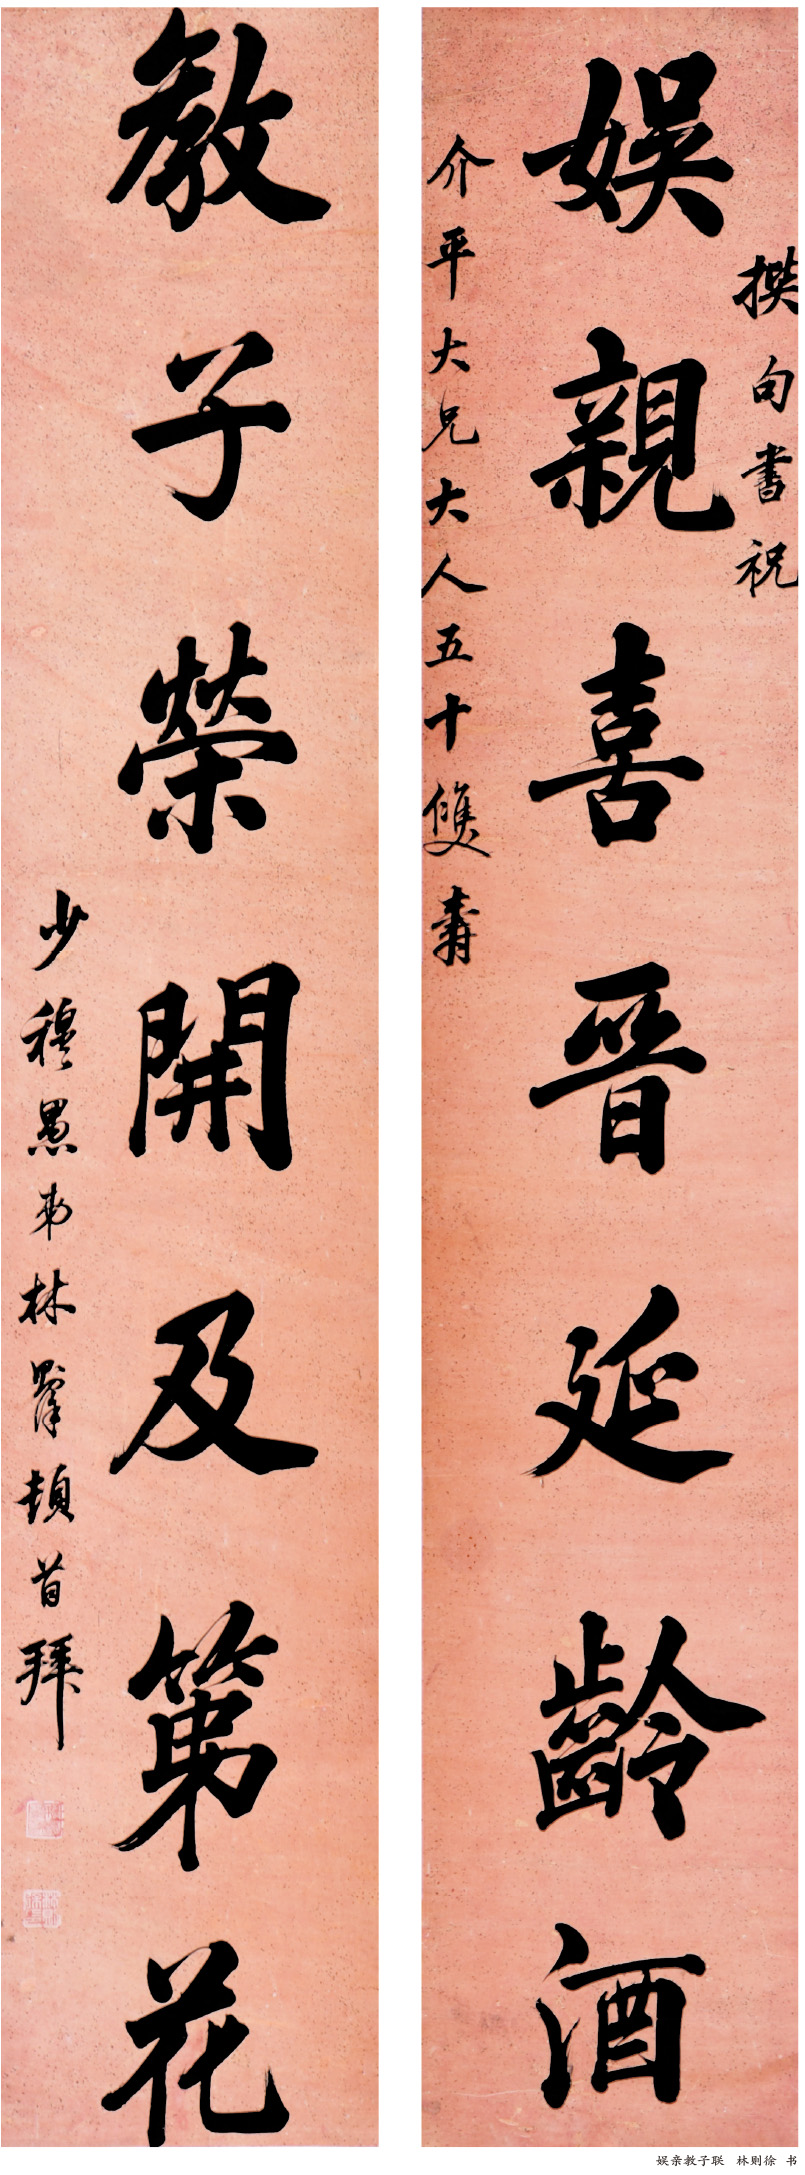 撰句書祝
娛親喜晉延齡酒
介平大兄大人五十雙壽
教子榮開及第花
少穆愚弟林則徐頓首拜
娱亲教子联 林则徐 书